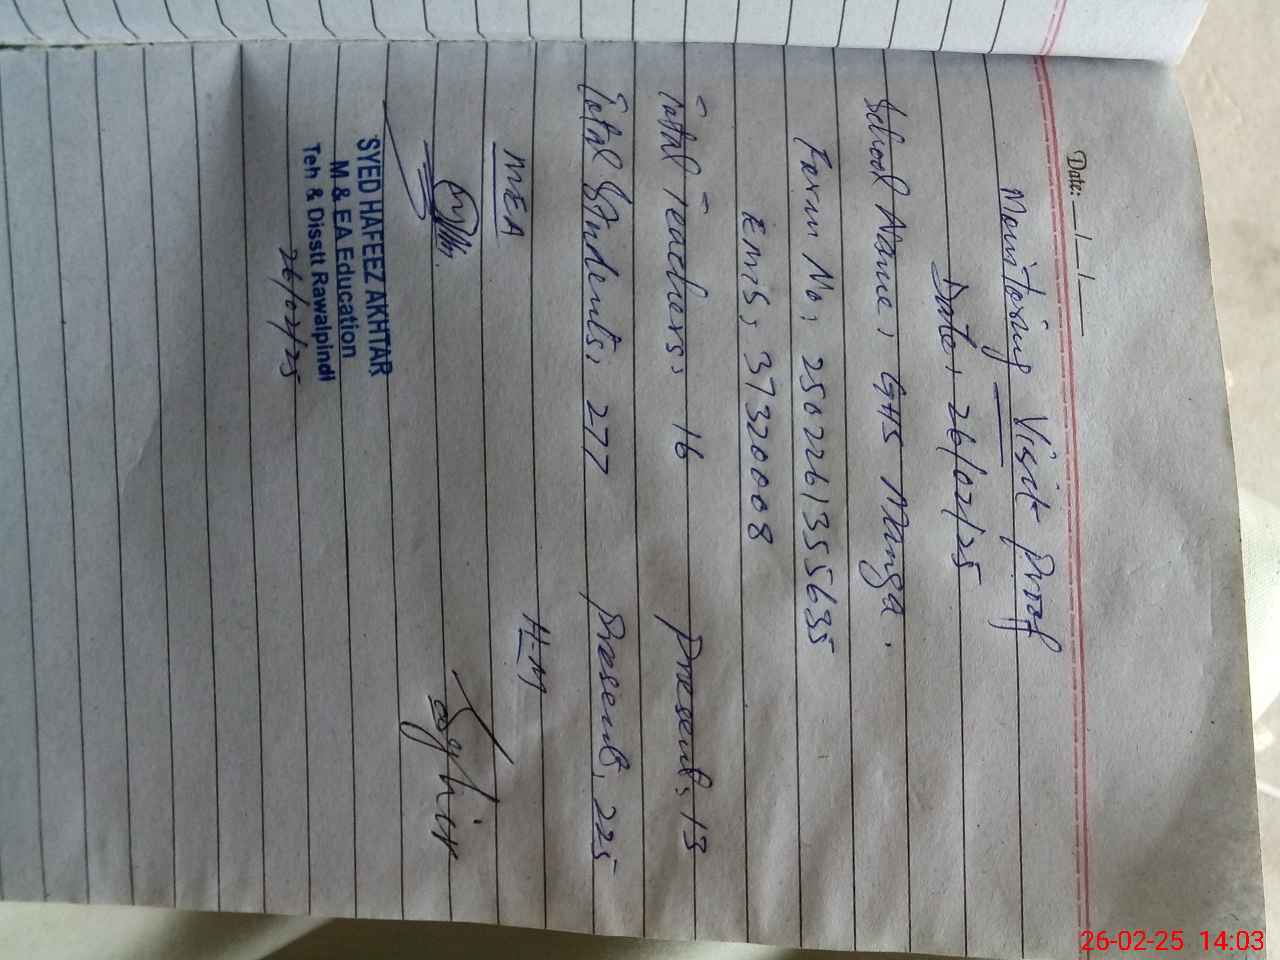 Date: __/__/__
Monitoring Visit Proof
Date, 26/02/25
School Name, GHS Manga.
Form No, 2502261355635
EMIS, 37320008
Total Teachers, 16 Present, 13
Total Students, 277 Present, 225
MEA H-M
SYED HAFEEZ AKHTAR
M & EA Education
Teh & Disstt Rawalpindi
26/02/25
26-02-25 14:03